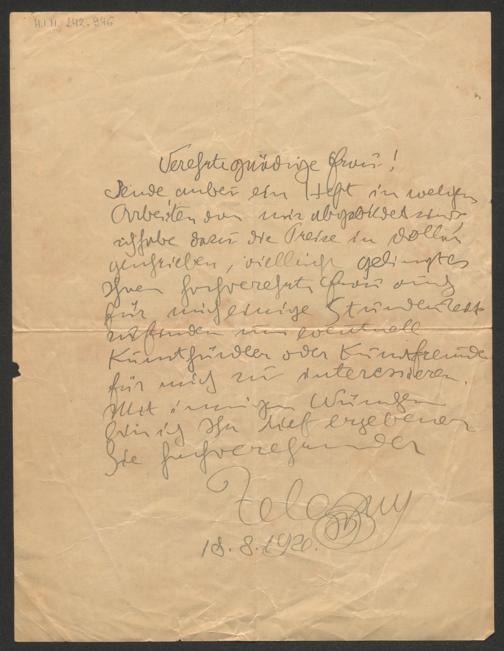 H.I.N. 242.946
Verehrte gnädige Frau!
Sende anbei ein Heft in welchem
Arbeiten von mir abgebildet sind
ich habe dazu die Preise in Dollar
geschrieben, vielleicht gelingt es
Ihnen hochverehrte Frau auch
für mich einige Stunden
aufzufinden um eventuell
Kunsthändler oder Kunstfreunde
für mich zu interessieren.
Mit innigen Wünschen
bin ich Ihr tief ergebener
Sie hochverehrender
Zelezny
18.8.1920.